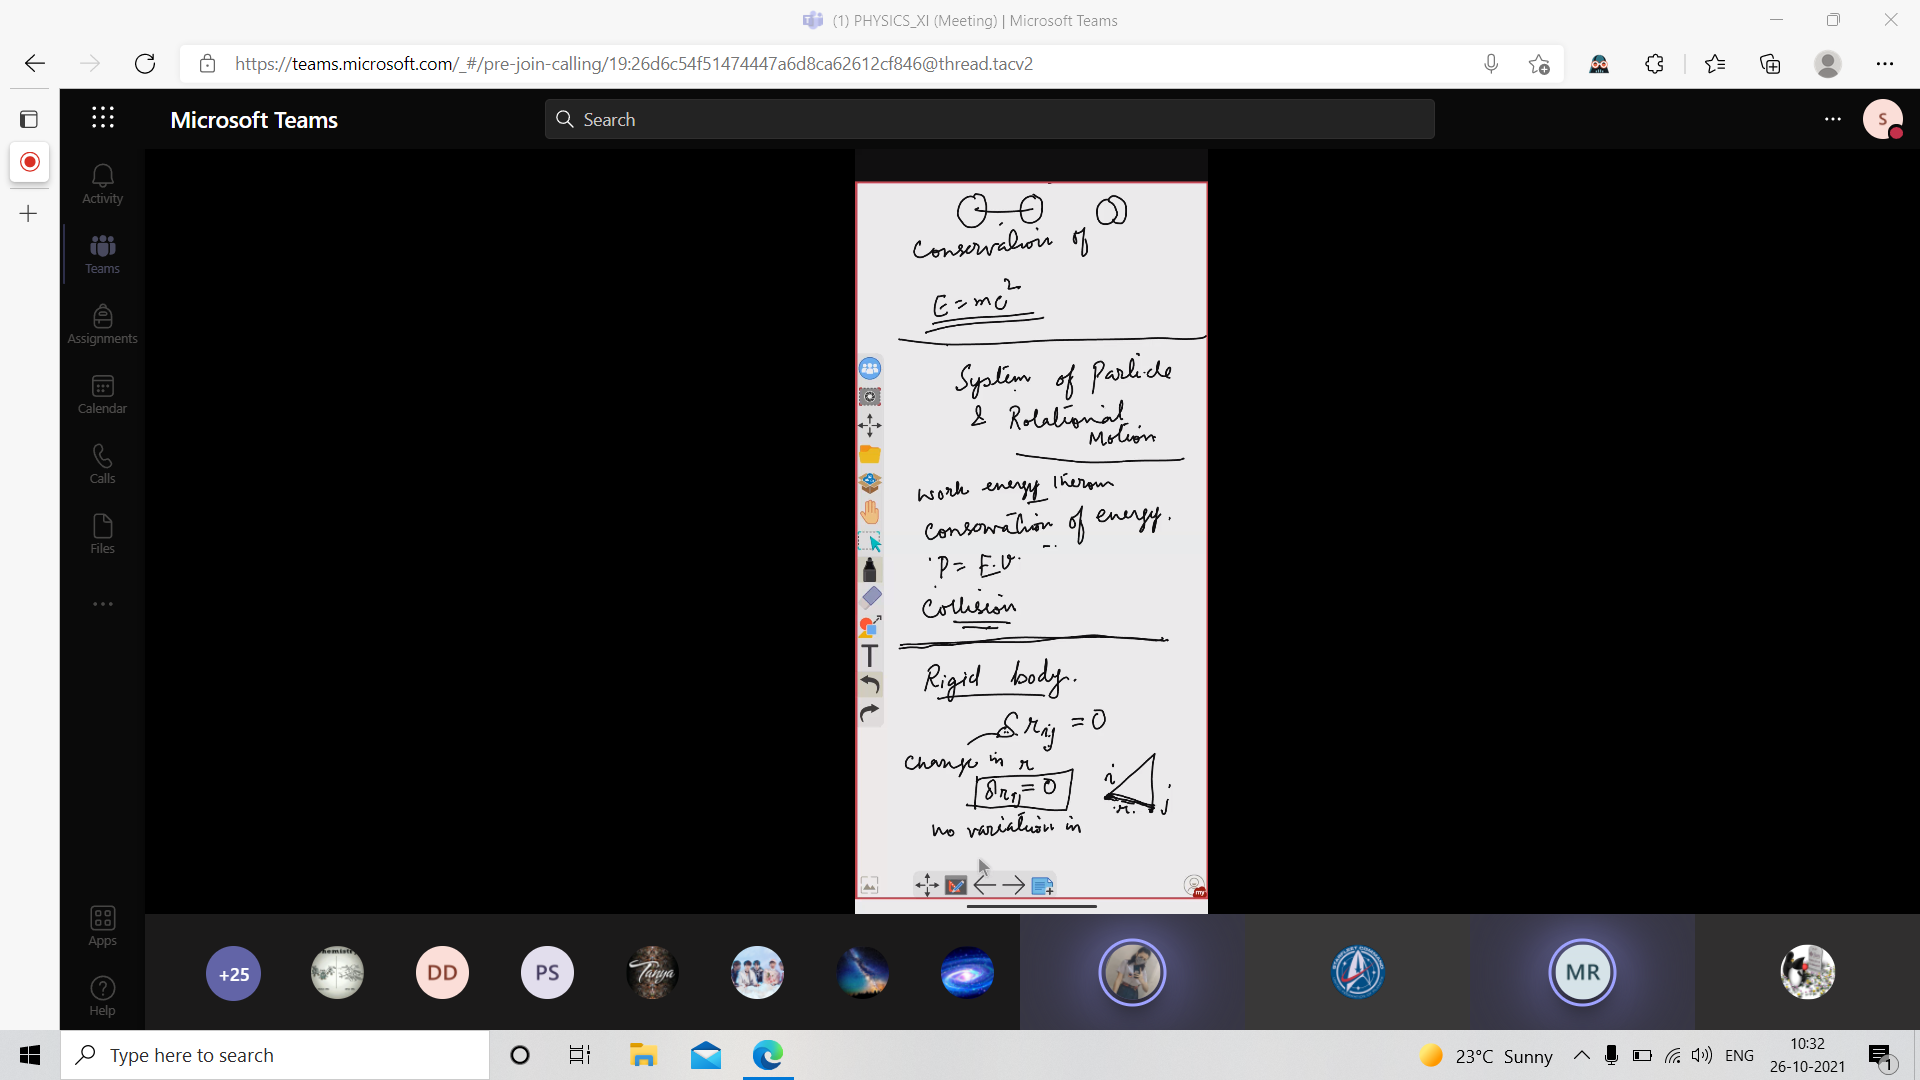 (1) PHYSICS_XI (Meeting) | Microsoft Teams
https://teams.microsoft.com/_#/pre-join-calling/19:26d6c54f51474447a6d8ca62612cf846@thread.tacv2
Microsoft Teams
Search
S
Activity
Teams
Assignments
Calendar
Calls
Files
Apps
Help
Conservation of
E = mc²
System of Particle
& Rotational
Motion
work energy therom
conservation of energy.
P = F.v
Collision
Rigid body.
δ rij = 0
change in r
δrij = 0
i
j
r
no variation in
T
my
+25
DD
PS
Tanya
MR
Type here to search
23°C Sunny
ENG
10:32
26-10-2021
1